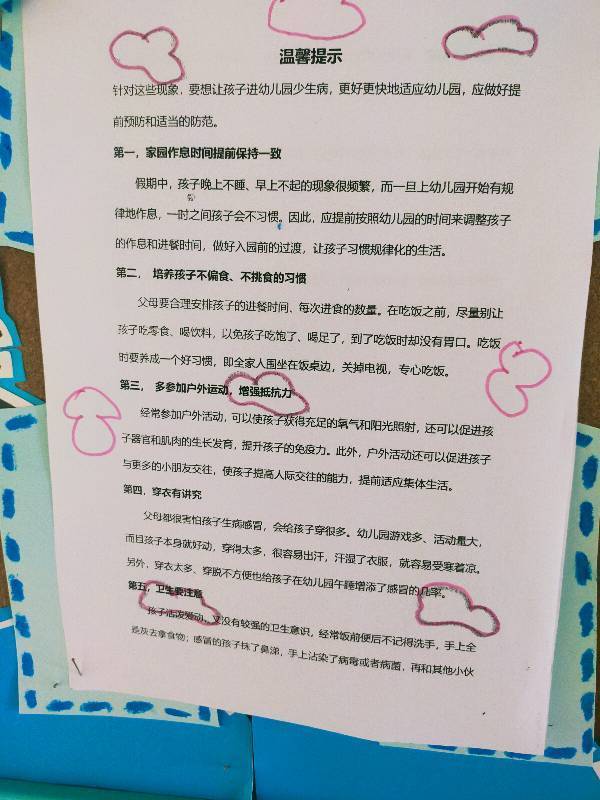 温馨提示
针对这些现象，要想让孩子进幼儿园少生病，更好更快地适应幼儿园，应做好提
前预防和适当的防范。
第一，家园作息时间提前保持一致
假期中，孩子晚上不睡、早上不起的现象很频繁，而一旦上幼儿园开始有规
律地作息，一时之间孩子会不习惯。因此，应提前按照幼儿园的时间来调整孩子
的作息和进餐时间，做好入园前的过渡，让孩子习惯规律化的生活。
第二， 培养孩子不偏食、不挑食的习惯
父母要合理安排孩子的进餐时间、每次进食的数量。在吃饭之前，尽量别让
孩子吃零食、喝饮料，以免孩子吃饱了、喝足了，到了吃饭时却没有胃口。吃饭
时要养成一个好习惯，即全家人围坐在饭桌边，关掉电视，专心吃饭。
第三， 多参加户外运动，增强抵抗力
经常参加户外活动，可以使孩子获得充足的氧气和阳光照射，还可以促进孩
子器官和肌肉的生长发育，提升孩子的免疫力。此外，户外活动还可以促进孩子
与更多的小朋友交往，使孩子提高人际交往的能力，提前适应集体生活。
第四，穿衣有讲究
父母都很害怕孩子生病感冒，会给孩子穿很多。幼儿园游戏多、活动量大，
而且孩子本身就好动，穿得太多，很容易出汗，汗湿了衣服，就容易受寒着凉。
另外，穿衣太多、穿脱不方便也给孩子在幼儿园午睡增添了感冒的几率。
第五，卫生要注意
孩子活泼爱动，又没有较强的卫生意识，经常饭前便后不记得洗手，手上全
是灰去拿食物；感冒的孩子抹了鼻涕，手上沾染了病毒或者病菌，再和其他小伙